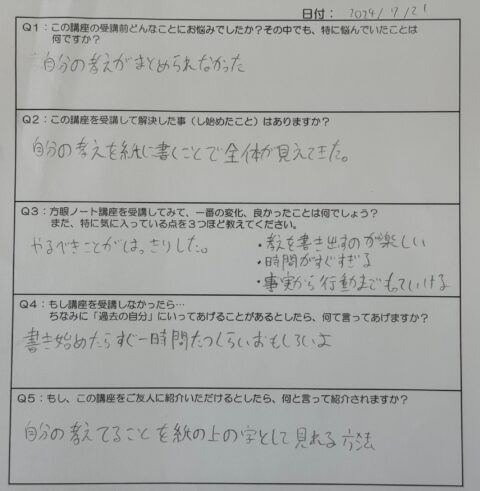 日付: 2024/9/21
Q1：この講座の受講前どんなことにお悩みでしたか？その中でも、特に悩んでいたことは
何ですか？
自分の考えがまとめられなかった
Q2：この講座を受講して解決した事（し始めたこと）はありますか？
自分の考えを紙に書くことで全体が見えてきた。
Q3：方眼ノート講座を受講してみて、一番の変化、良かったことは何でしょう？
また、特に気に入っている点を３つほど教えてください。
やるべきことがはっきりした。
・考を書き出すのが楽しい
・時間がすぐすぎる
・事実から行動までもっていける
Q4：もし講座を受講しなかったら…
ちなみに「過去の自分」にいってあげることがあるとしたら、何て言ってあげますか？
書き始めたらすぐ一時間たつくらいおもしろいよ
Q5：もし、この講座をご友人に紹介いただけるとしたら、何と言って紹介されますか？
自分の考えてることを紙の上の字として見れる方法